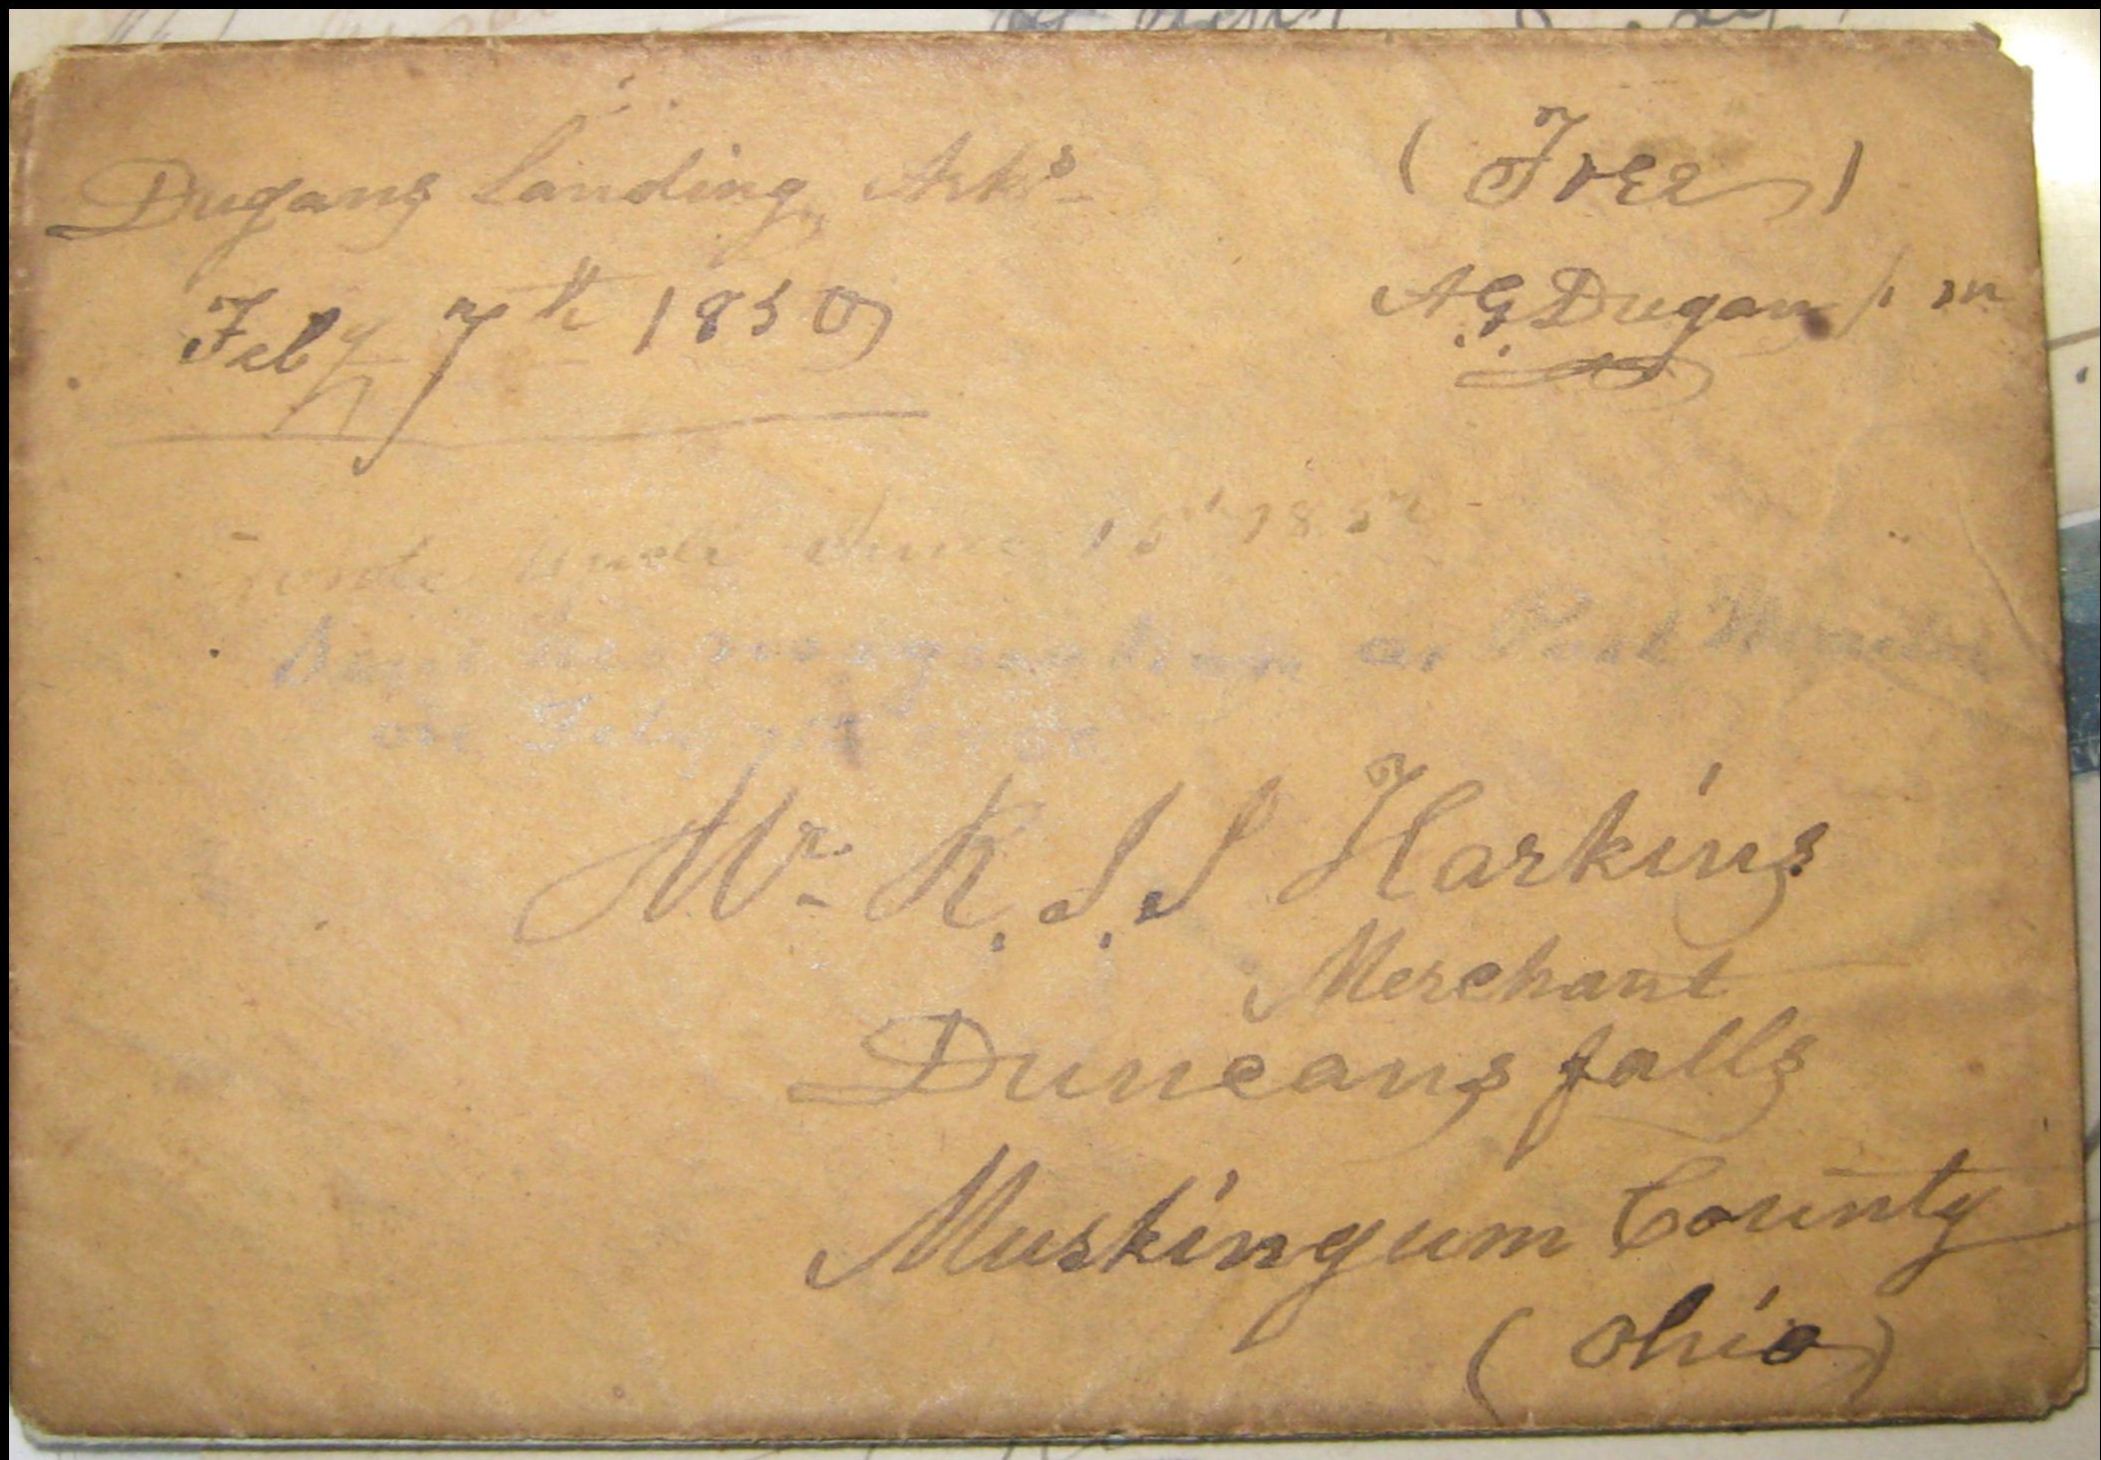 Dugans Landing, Arks
(Free)
Feby 7th 1850
A.G. Dugan p. m
June 15th 185
as Post Master
on Feby
Mr. R. S. S Harkins
Merchant
Duncans falls
Muskingum County
(Ohio)